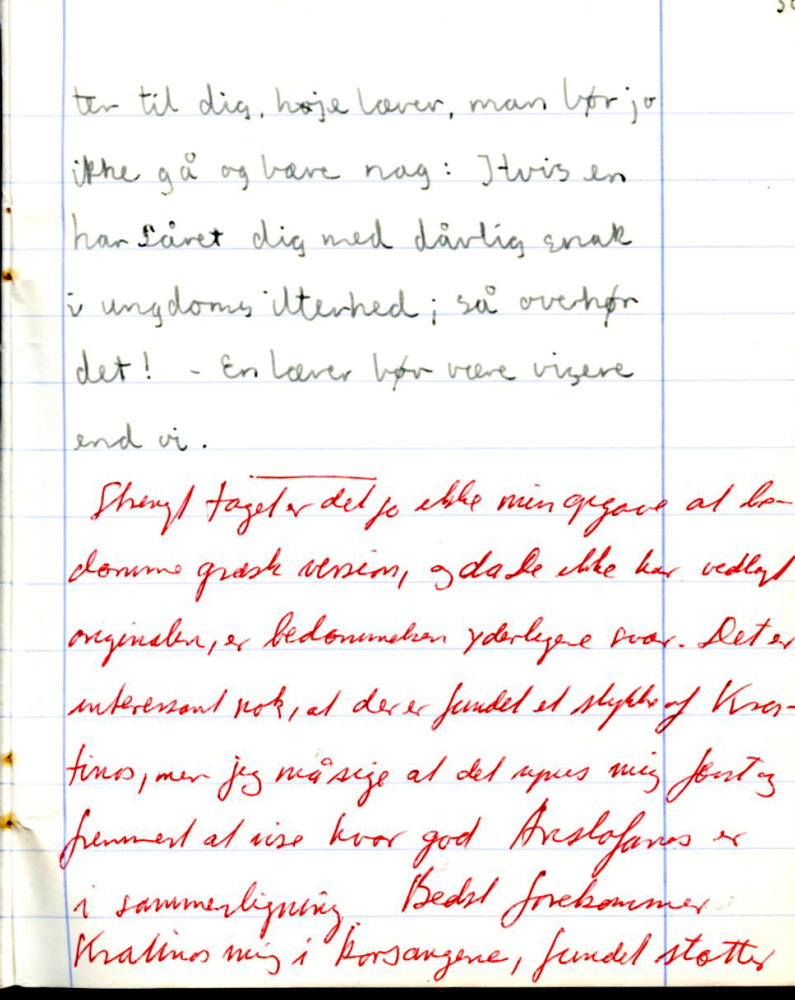 ter til dig, høje læver, man bør jo
ikke gå og bære nag: Hvis en
har såret dig med dårlig snak
i ungdoms ilterhed; så overhør
det! - En læver bør være visere
end vi.
Strengt taget er det jo ikke min opgave at be-
dømme græsk version, og da De ikke har vedlagt
originalen, er bedømmelsen yderligere svær. Det er
interessant nok, at der er fundet et stykke af Kra-
tinos, men jeg må sige at det synes mig først og
fremmest at vise hvor god Aristofanes er
i sammenligning. Bedst forekommer
Kratinos mig i korsangene, fundet støtter